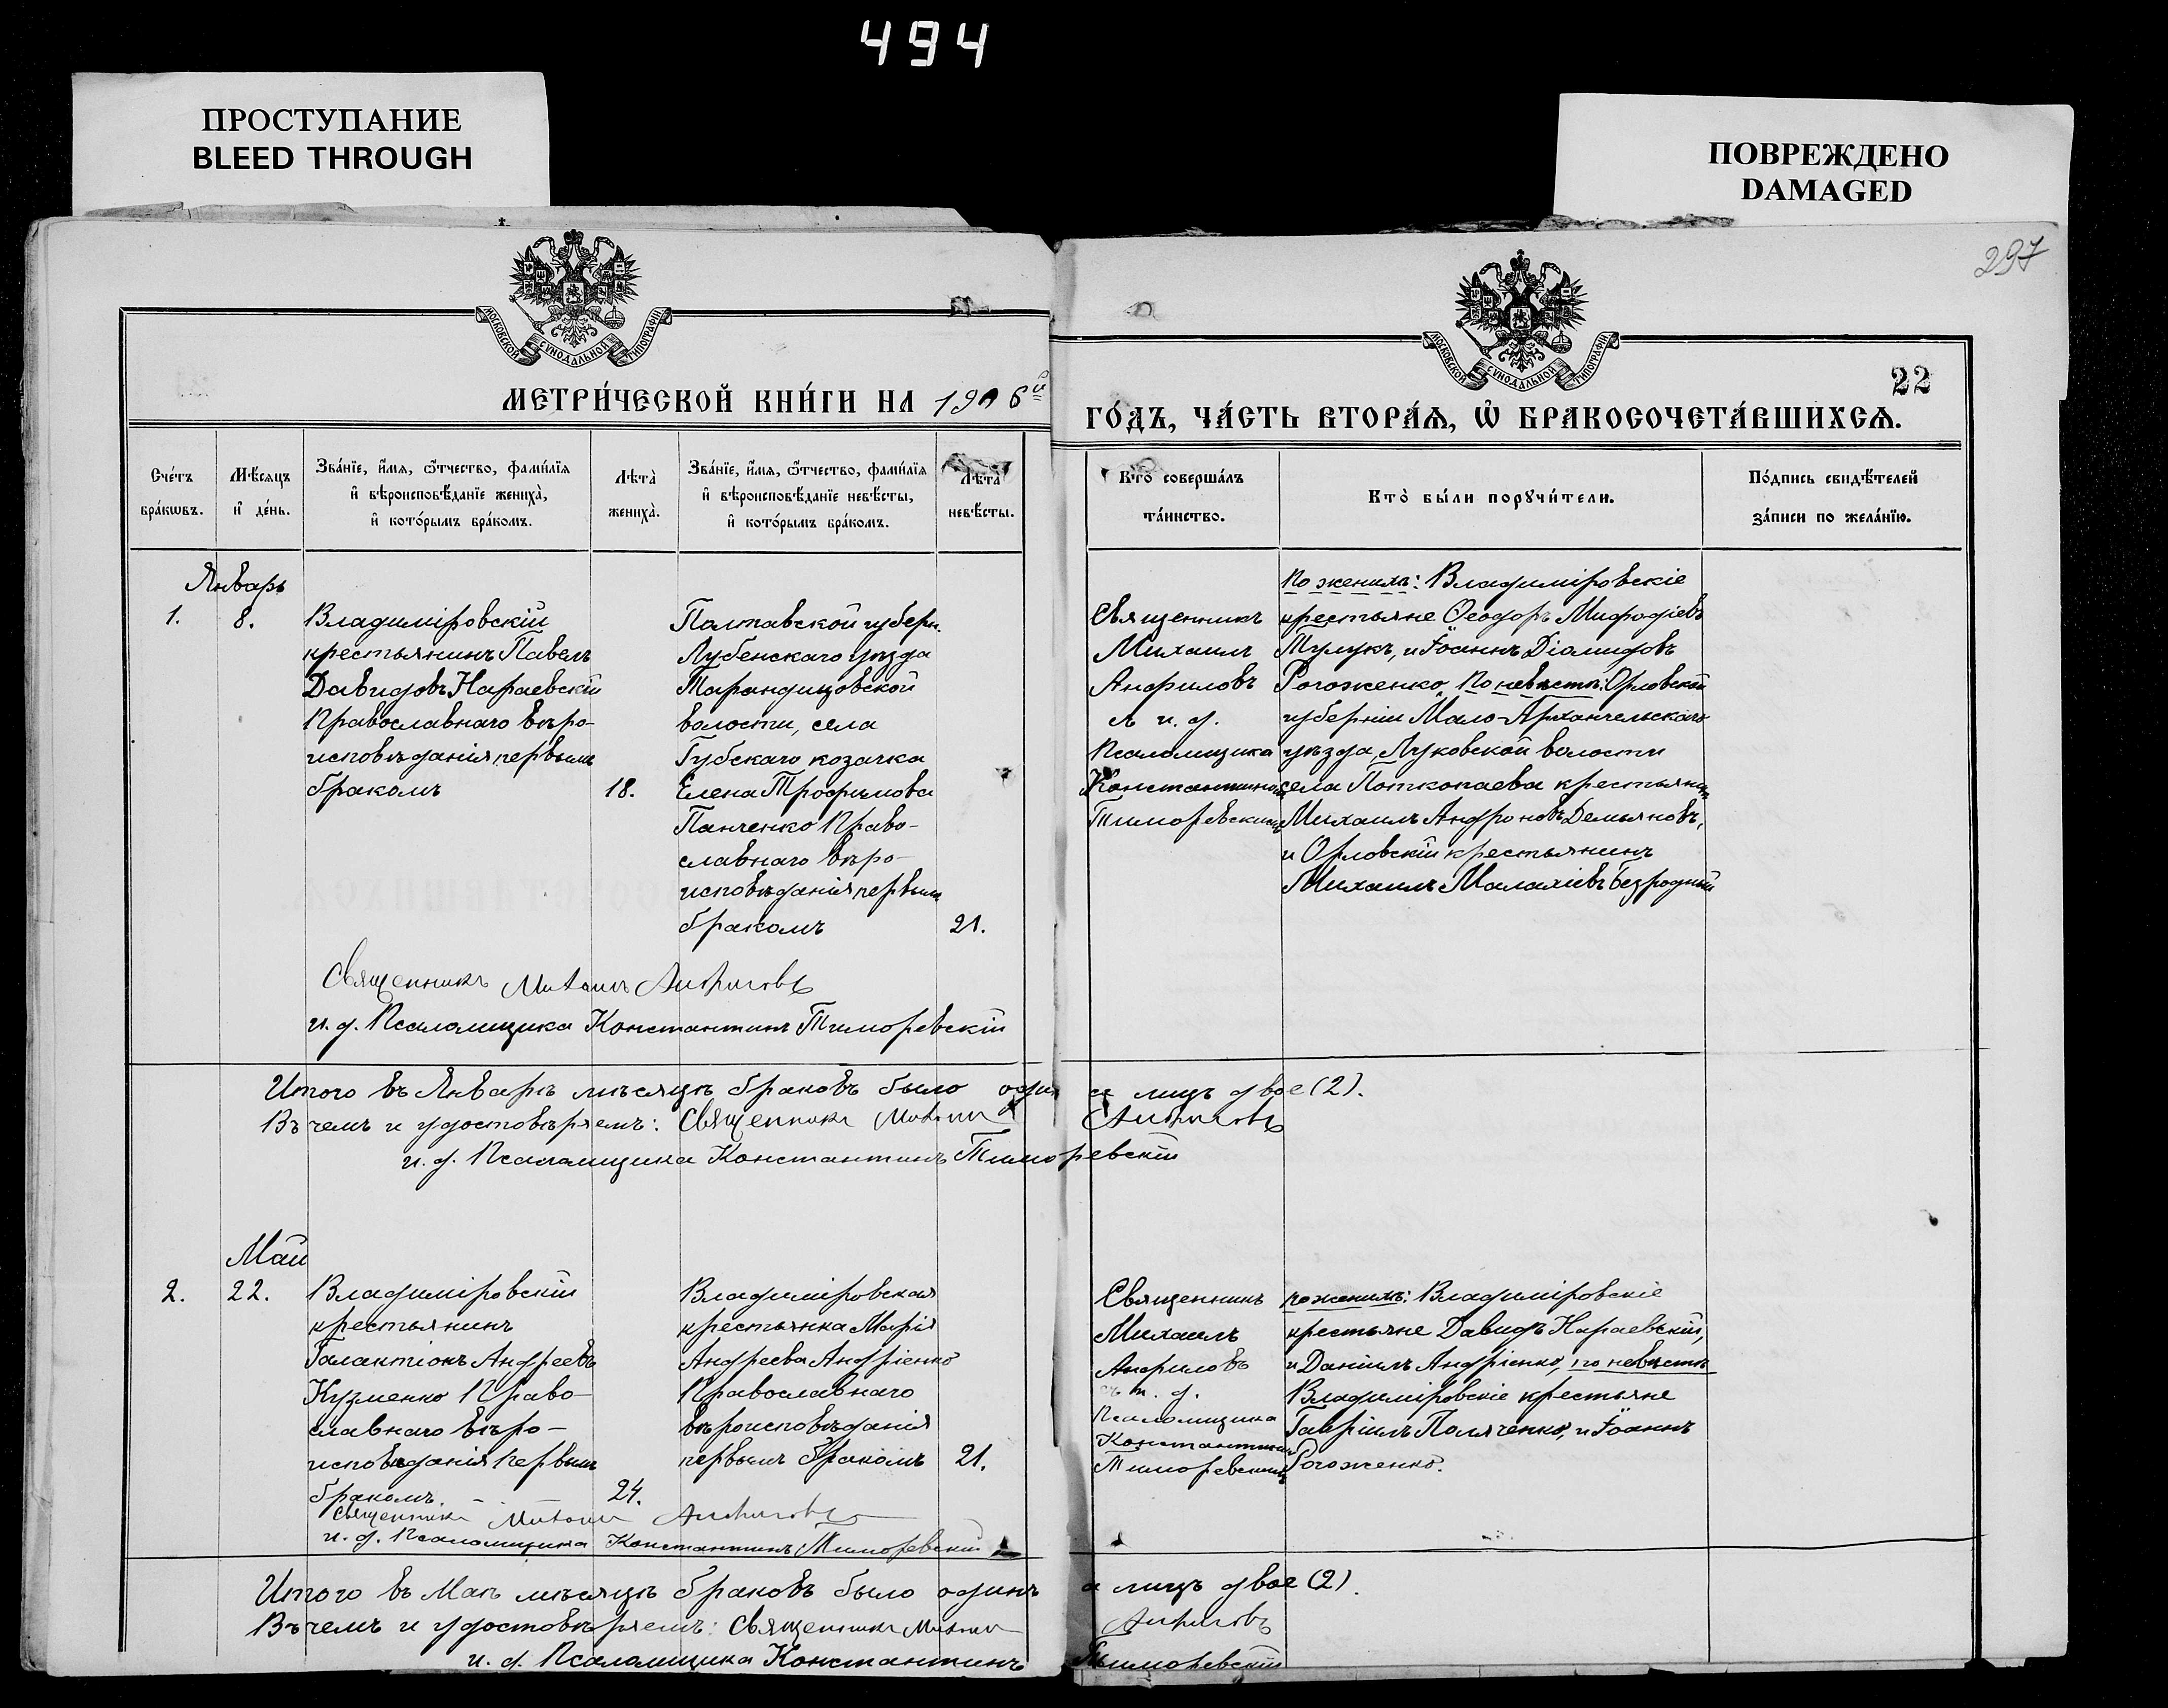 494
ПРОСТУПАНИЕ
BLEED THROUGH
ПОВРЕЖДЕНО
DAMAGED
297
МОСКОВСКОЙ СУНОДАЛЬНОЙ ТИПОГРАФІИ
МОСКОВСКОЙ СУНОДАЛЬНОЙ ТИПОГРАФІИ
22
МЕТРИ́ЧЕСКОЙ КНИ́ГИ НА 1906й
ГО́ДЪ, ЧА́СТЬ ВТОРА́Ѧ, Ѡ҆ БРАКОСОЧЕТА́ВШИХСѦ.
Сче́тъ
бра́кѡвъ.
Мѣ́сяцъ
и҆ де́нь.
Зва́нїе, и҆́мя, ѻ҆́тчество, фами́лїя
и҆ вѣроисповѣ́данїе жениха̀,
и҆ кото́рымъ бра́комъ.
Лѣ́та
жениха̀.
Зва́нїе, и҆́мя, ѻ҆́тчество, фами́лїя
и҆ вѣроисповѣ́данїе невѣ́сты,
и҆ кото́рымъ бра́комъ.
Лѣ́та
невѣ́сты.
Кто̀ соверша́лъ
та́инство.
Кто̀ бы́ли порꙋчи́тели.
По́дпись свидѣ́телей
за́писи по жела́нїю.
Январь
1.
8.
Владиміровскій
крестьянинъ Павелъ
Давидовъ Караевскій
Православнаго вѣро-
исповѣданія первымъ
бракомъ
18.
Полтавской губерн.
Лубенскаго уѣзда
Тарандицовской
волости, села
Губскаго козачка
Елена Трофимова
Панченко Право-
славнаго вѣро-
исповѣданія первымъ
бракомъ
21.
Священникъ
Михаилъ
Анфиловъ
съ и. д.
Псаломщика
Константиномъ
Тиморевскимъ
по женихѣ: Владиміровскіе
крестьяне Ѳеодоръ Мифодіевъ
Тулукъ, и Іоаннъ Діамидовъ
Рогоженко. По невѣстѣ: Орловской
губерніи Мало-Архангельскаго
уѣзда, Луковской волости
села Поткопаева крестьянинъ
Михаилъ Андроновъ Демьяновъ,
и Орловскій крестьянинъ
Михаилъ Малахіевъ Безродный
Священникъ Михаилъ Анфиловъ
и. д. Псаломщика Константинъ Тиморевскій
Итого въ Январѣ мѣсяцѣ браковъ было одинъ а лицъ двое (2).
Въ чемъ и удостовѣряемъ: Священникъ Михаилъ Анфиловъ
и. д. Псаломщика Константинъ Тиморевскій
Май
2.
22.
Владиміровскій
крестьянинъ
Галактіонъ Андреевъ
Кузменко Право-
славнаго вѣро-
исповѣданія первымъ
бракомъ.
24.
Владиміровская
крестьянка Марія
Андреева Андріенко
Православнаго
вѣроисповѣданія
первымъ бракомъ
21.
Священникъ
Михаилъ
Анфиловъ
съ и. д.
Псаломщика
Константиномъ
Тиморевскимъ
по женихѣ: Владиміровскіе
крестьяне Давидъ Караевскій,
и Даніилъ Андріенко, по невѣстѣ
Владиміровскіе крестьяне
Гавріилъ Поляченко, и Іоаннъ
Рогоженко.
Священникъ Михаилъ Анфиловъ
и. д. Псаломщика Константинъ Тиморевскій
Итого въ Маѣ мѣсяцѣ браковъ было одинъ а лицъ двое (2).
Въ чемъ и удостовѣряемъ: Священникъ Михаилъ Анфиловъ
и. д. Псаломщика Константинъ Тиморевскій